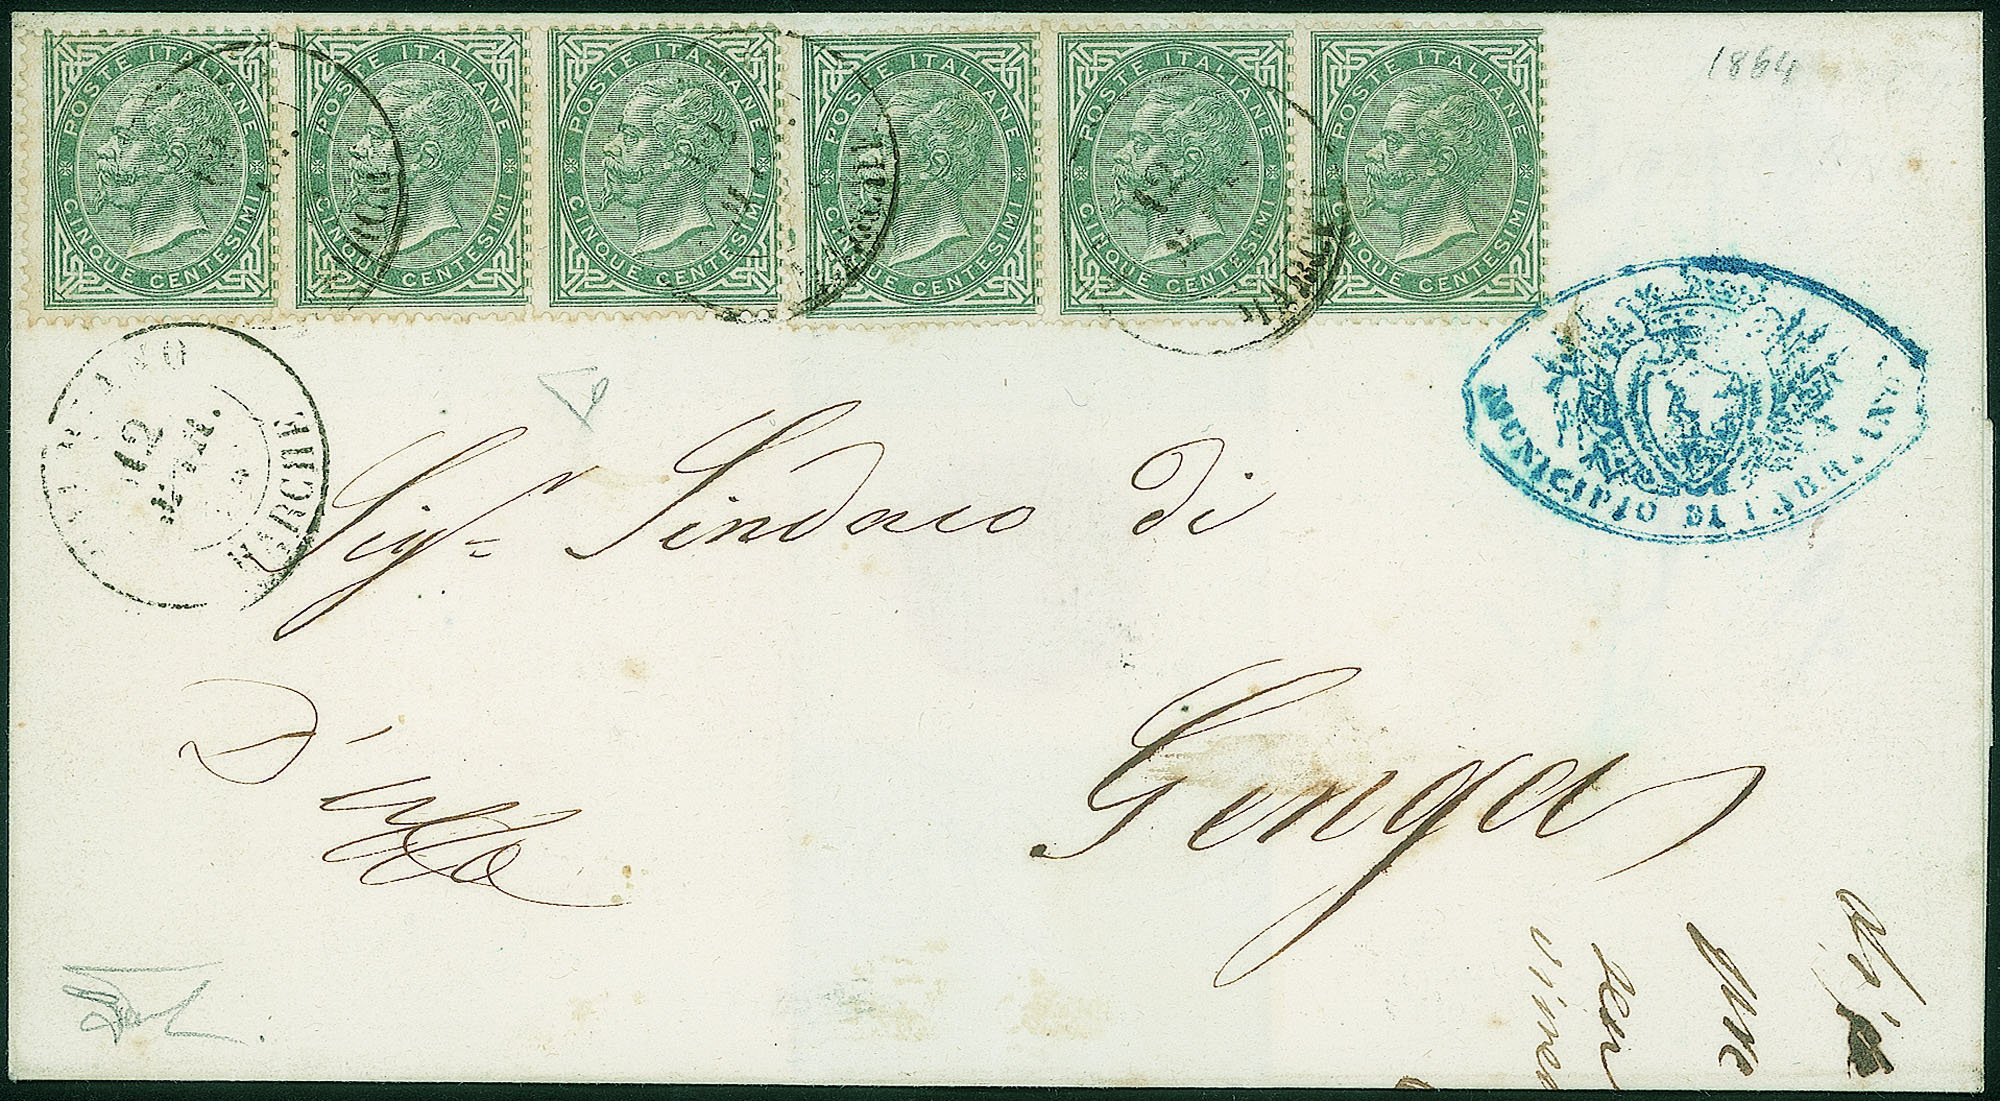 POSTE ITALIANE
CINQUE CENTESIMI
POSTE ITALIANE
CINQUE CENTESIMI
POSTE ITALIANE
CINQUE CENTESIMI
POSTE ITALIANE
CENTESIMI
POSTE ITALIANE
CINQUE CENTESIMI
POSTE ITALIANE
CINQUE CENTESIMI
12
1864
12
MARCHE
MUNICIPIO DI FABRIANO
Sigr. Sindaco di
Genga
D'uffo